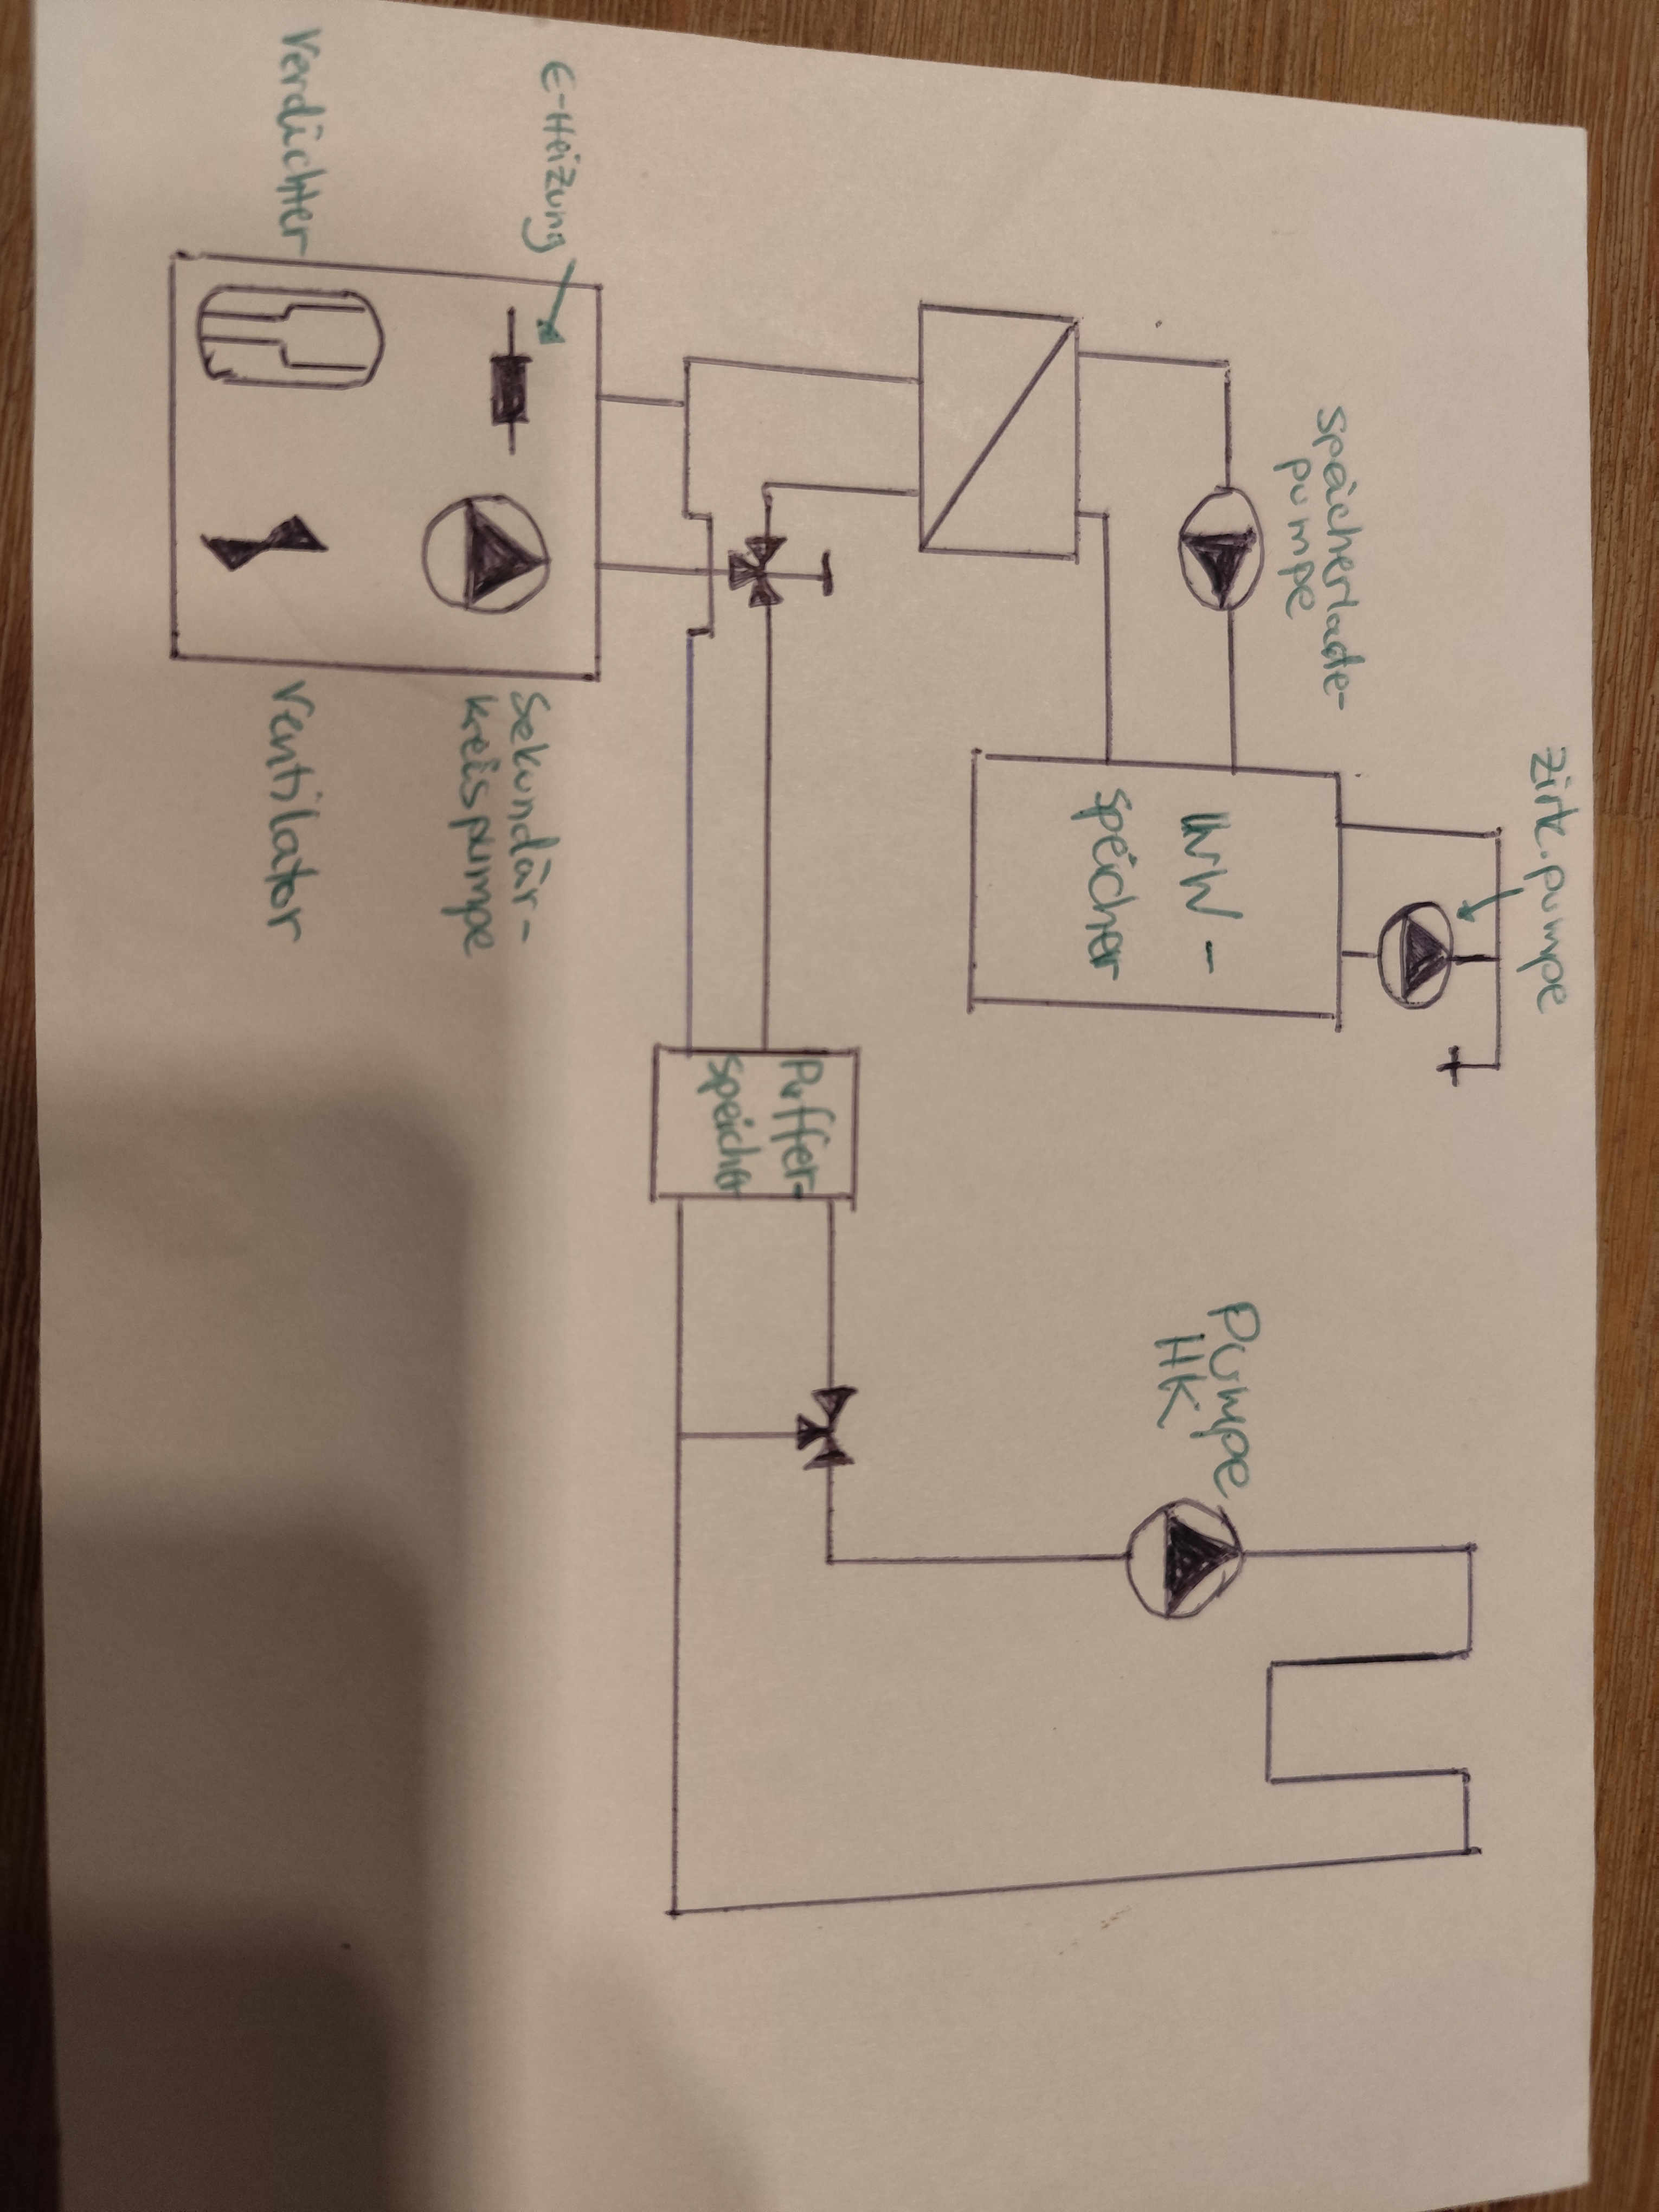 Zirk.pumpe
Speicherlade-
pumpe
Pumpe
HK
WW-
Speicher
Puffer-
speicher
E-Heizung
Sekundär-
kreispumpe
Verdichter
Ventilator